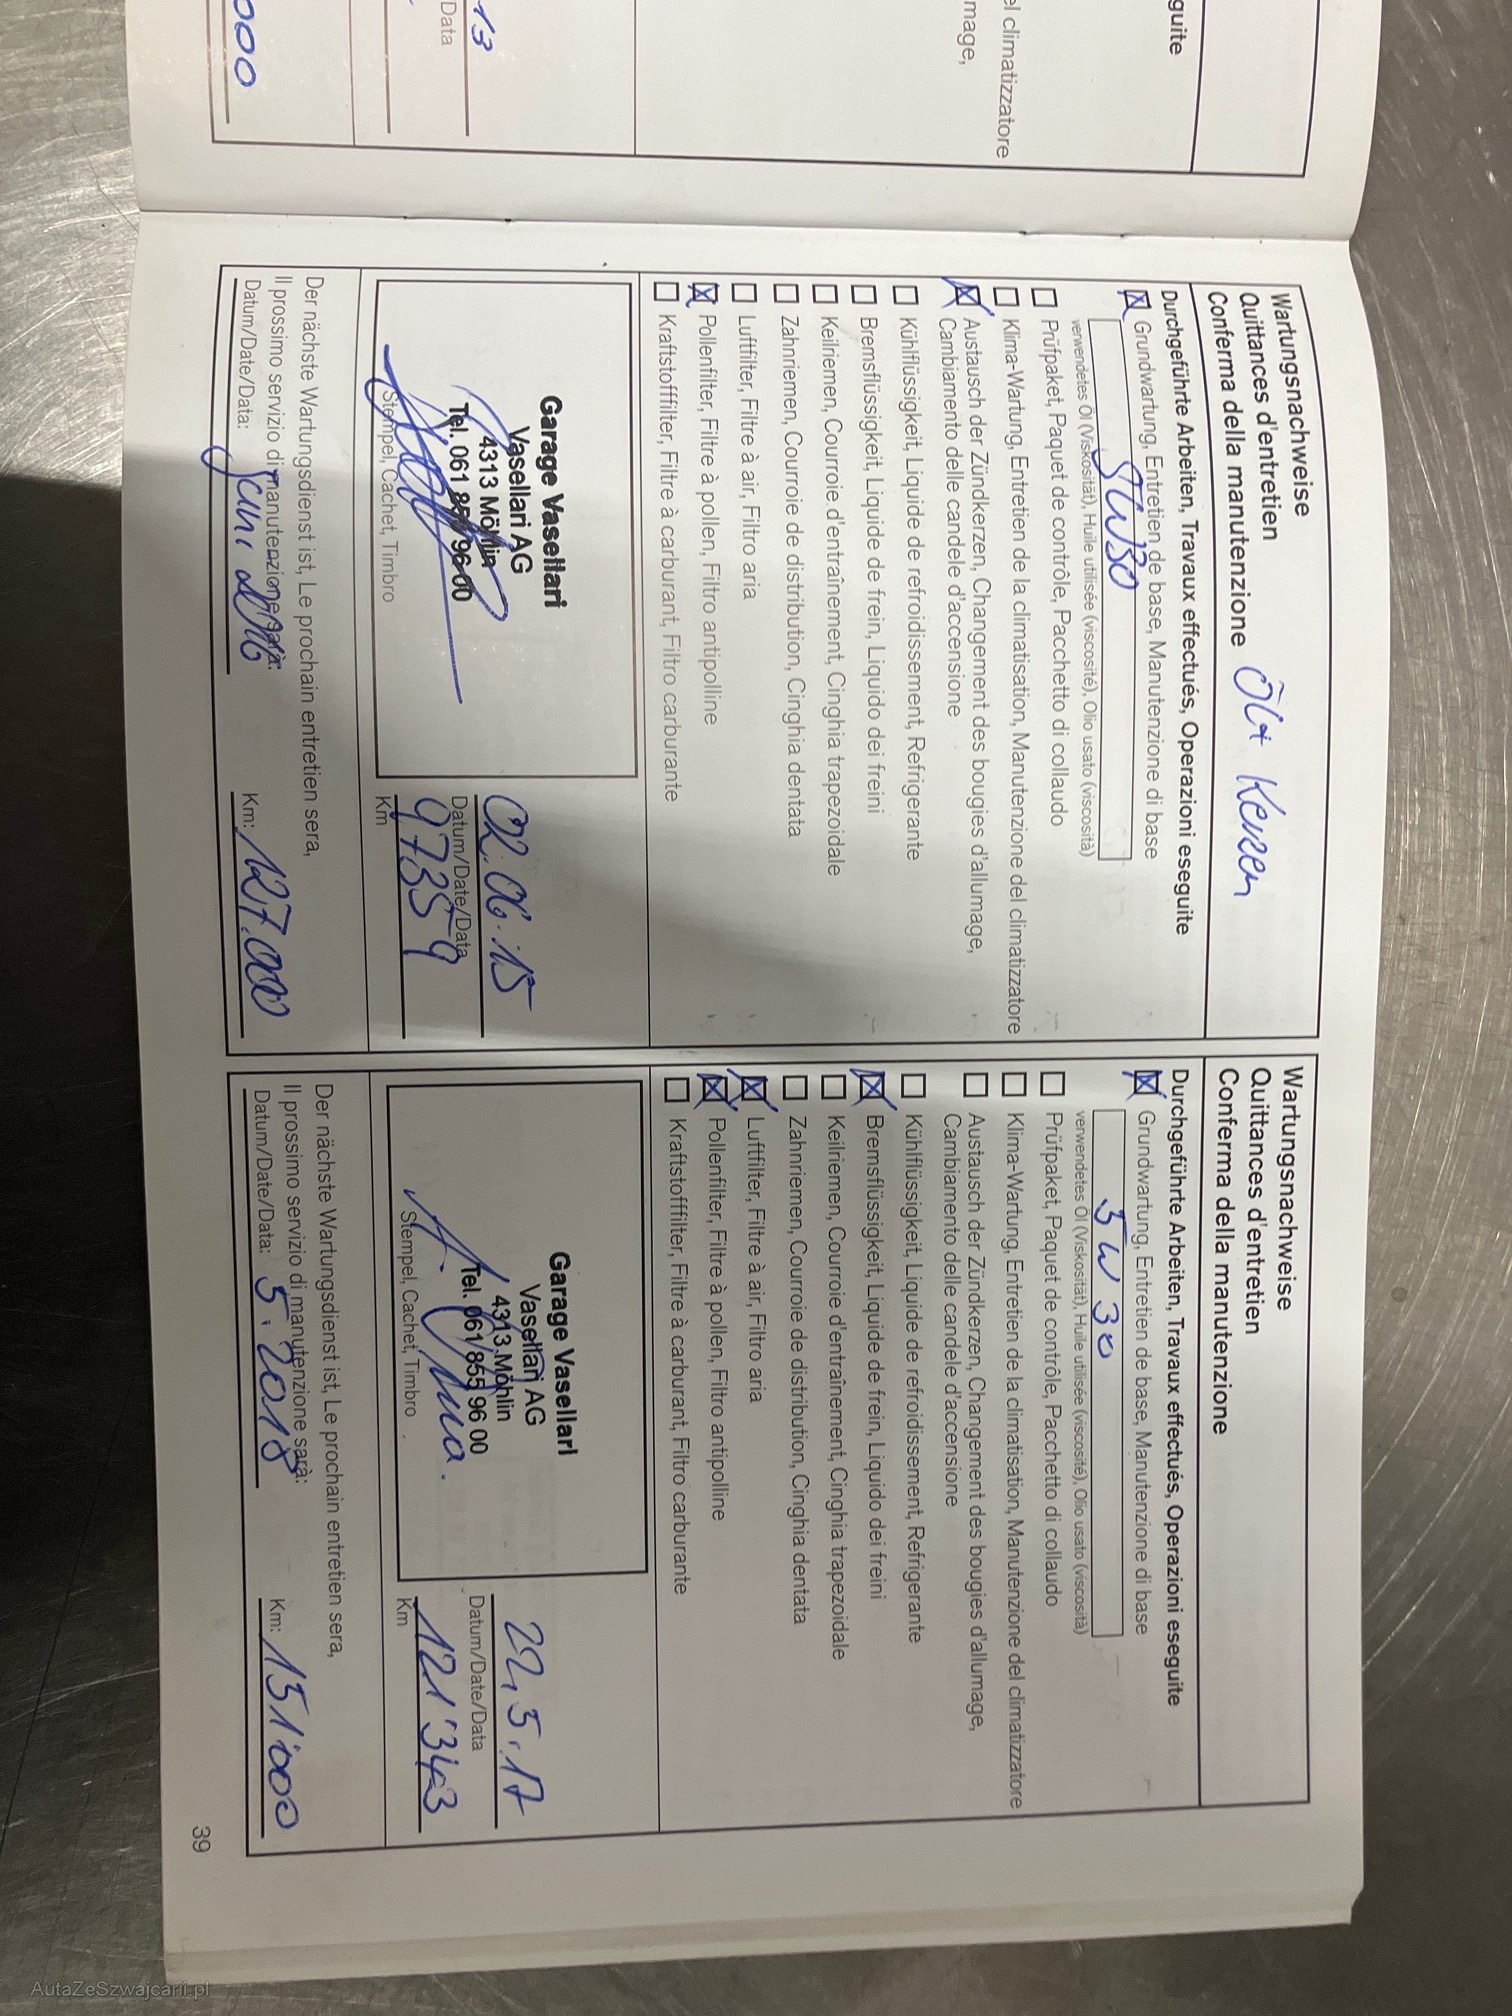 guite
el climatizzatore
mage,
13
Data
000
Wartungsnachweise
Quittances d'entretien
Conferma della manutenzione
Öl + Kerzen
Durchgeführte Arbeiten, Travaux effectués, Operazioni eseguite
Grundwartung, Entretien de base, Manutenzione di base
5W30
verwendetes Öl (Viskosität), Huile utilisée (viscosité), Olio usato (viscosità)
Prüfpaket, Paquet de contrôle, Pacchetto di collaudo
Klima-Wartung, Entretien de la climatisation, Manutenzione del climatizzatore
Austausch der Zündkerzen, Changement des bougies d'allumage,
Cambiamento delle candele d'accensione
Kühlflüssigkeit, Liquide de refroidissement, Refrigerante
Bremsflüssigkeit, Liquide de frein, Liquido dei freini
Keilriemen, Courroie d'entraînement, Cinghia trapezoidale
Zahnriemen, Courroie de distribution, Cinghia dentata
Luftfilter, Filtre à air, Filtro aria
Pollenfilter, Filtre à pollen, Filtro antipolline
Kraftstofffilter, Filtre à carburant, Filtro carburante
Garage Vasellari
Vasellari AG
4313 Möhlin
Tel. 061 855 96 00
Stempel, Cachet, Timbro
02.06.15
Datum/Date/Data
97359
Km
Der nächste Wartungsdienst ist, Le prochain entretien sera,
Il prossimo servizio di manutenzione sarà:
Datum/Date/Data: 2016
Km: 127.000
Wartungsnachweise
Quittances d'entretien
Conferma della manutenzione
Durchgeführte Arbeiten, Travaux effectués, Operazioni eseguite
Grundwartung, Entretien de base, Manutenzione di base
5W30
verwendetes Öl (Viskosität), Huile utilisée (viscosité), Olio usato (viscosità)
Prüfpaket, Paquet de contrôle, Pacchetto di collaudo
Klima-Wartung, Entretien de la climatisation, Manutenzione del climatizzatore
Austausch der Zündkerzen, Changement des bougies d'allumage,
Cambiamento delle candele d'accensione
Kühlflüssigkeit, Liquide de refroidissement, Refrigerante
Bremsflüssigkeit, Liquide de frein, Liquido dei freini
Keilriemen, Courroie d'entraînement, Cinghia trapezoidale
Zahnriemen, Courroie de distribution, Cinghia dentata
Luftfilter, Filtre à air, Filtro aria
Pollenfilter, Filtre à pollen, Filtro antipolline
Kraftstofffilter, Filtre à carburant, Filtro carburante
Garage Vasellari
Vasellari AG
4313 Möhlin
Tel. 061 855 96 00
Stempel, Cachet, Timbro
22.5.17
Datum/Date/Data
121'343
Km
Der nächste Wartungsdienst ist, Le prochain entretien sera,
Il prossimo servizio di manutenzione sarà:
Datum/Date/Data: 5.2018
Km: 151'000
39
AutaZeSzwajcarii.pl